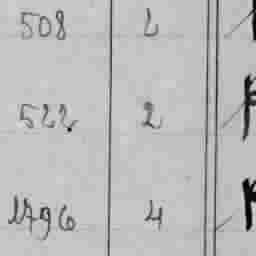 508 2
522 2
1796 4